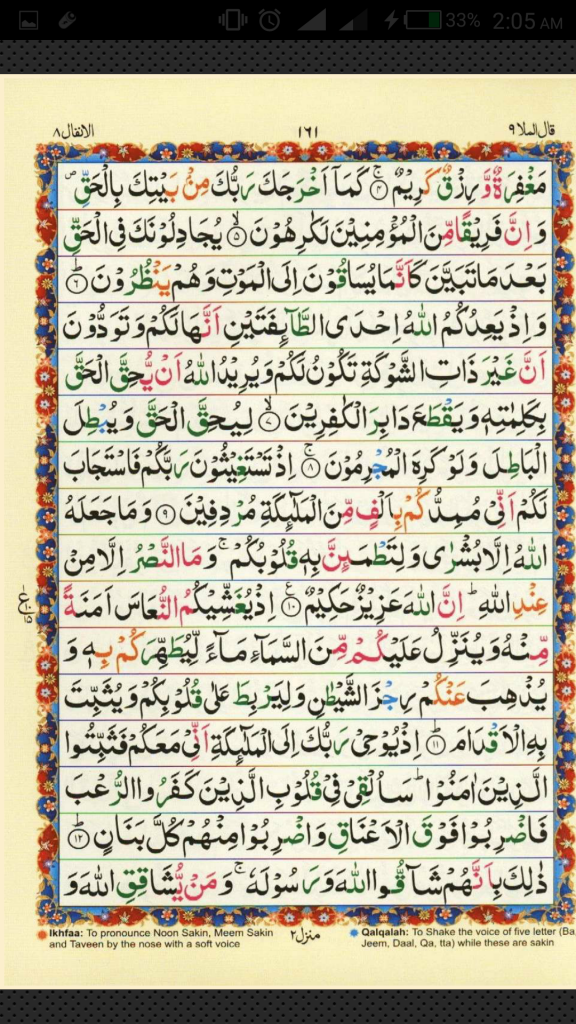 33% 2:05 AM
قال الملا ٩ ١٦١ الانفال ٨
مَغْفِرَةٌ وَّرِزْقٌ كَرِيْمٌ ۚ﴿۴﴾ كَمَاۤ اَخْرَجَكَ رَبُّكَ مِنْۢ بَيْتِكَ بِالْحَقِّ ۪
وَاِنَّ فَرِيْقًا مِّنَ الْمُؤْمِنِيْنَ لَكٰرِهُوْنَ ۙ﴿۵﴾ يُجَادِلُوْنَكَ فِى الْحَقِّ
بَعْدَ مَا تَبَيَّنَ كَاَنَّمَا يُسَاقُوْنَ اِلَى الْمَوْتِ وَهُمْ يَنْظُرُوْنَ ؕ﴿۶﴾
وَاِذْ يَعِدُكُمُ اللّٰهُ اِحْدَى الطَّآٮِٕفَتَيْنِ اَنَّهَا لَكُمْ وَتَوَدُّوْنَ
اَنَّ غَيْرَ ذَاتِ الشَّوْكَةِ تَكُوْنُ لَكُمْ وَيُرِيْدُ اللّٰهُ اَنْ يُّحِقَّ الْحَقَّ
بِكَلِمٰتِهٖ وَيَقْطَعَ دَابِرَ الْكٰفِرِيْنَ ۙ﴿۷﴾ لِيُحِقَّ الْحَقَّ وَيُبْطِلَ
الْبَاطِلَ وَلَوْ كَرِهَ الْمُجْرِمُوْنَ ۚ﴿۸﴾ اِذْ تَسْتَغِيْثُوْنَ رَبَّكُمْ فَاسْتَجَابَ
لَكُمْ اَنِّىْ مُمِدُّكُمْ بِاَلْفٍ مِّنَ الْمَلٰٓٮِٕكَةِ مُرْدِفِيْنَ ﴿۹﴾ وَمَا جَعَلَهُ
اللّٰهُ اِلَّا بُشْرٰى وَلِتَطْمَٮِٕنَّ بِهٖ قُلُوْبُكُمْ ۚ وَمَا النَّصْرُ اِلَّا مِنْ
عِنْدِ اللّٰهِ ؕ اِنَّ اللّٰهَ عَزِيْزٌ حَكِيْمٌ ﴿۱۰﴾ اِذْ يُغَشِّيْكُمُ النُّعَاسَ اَمَنَةً
مِّنْهُ وَيُنَزِّلُ عَلَيْكُمْ مِّنَ السَّمَآءِ مَآءً لِّيُطَهِّرَكُمْ بِهٖ وَ
يُذْهِبَ عَنْكُمْ رِجْزَ الشَّيْطٰنِ وَلِيَرْبِطَ عَلٰى قُلُوْبِكُمْ وَيُثَبِّتَ
بِهِ الْاَقْدَامَ ؕ﴿۱۱﴾ اِذْ يُوْحِىْ رَبُّكَ اِلَى الْمَلٰٓٮِٕكَةِ اَنِّىْ مَعَكُمْ فَثَبِّتُوا
الَّذِيْنَ اٰمَنُوْا ؕ سَاُلْقِىْ فِىْ قُلُوْبِ الَّذِيْنَ كَفَرُوا الرُّعْبَ
فَاضْرِبُوْا فَوْقَ الْاَعْنَاقِ وَاضْرِبُوْا مِنْهُمْ كُلَّ بَنَانٍ ؕ﴿۱۲﴾
ذٰلِكَ بِاَنَّهُمْ شَآقُّوا اللّٰهَ وَرَسُوْلَهٗ ۚ وَمَنْ يُّشَاقِقِ اللّٰهَ وَ
منزل ٢
Ikhfaa: To pronounce Noon Sakin, Meem Sakin
and Taveen by the nose with a soft voice
Qalqalah: To Shake the voice of five letter (Ba
Jeem, Daal, Qa, tta) while these are sakin